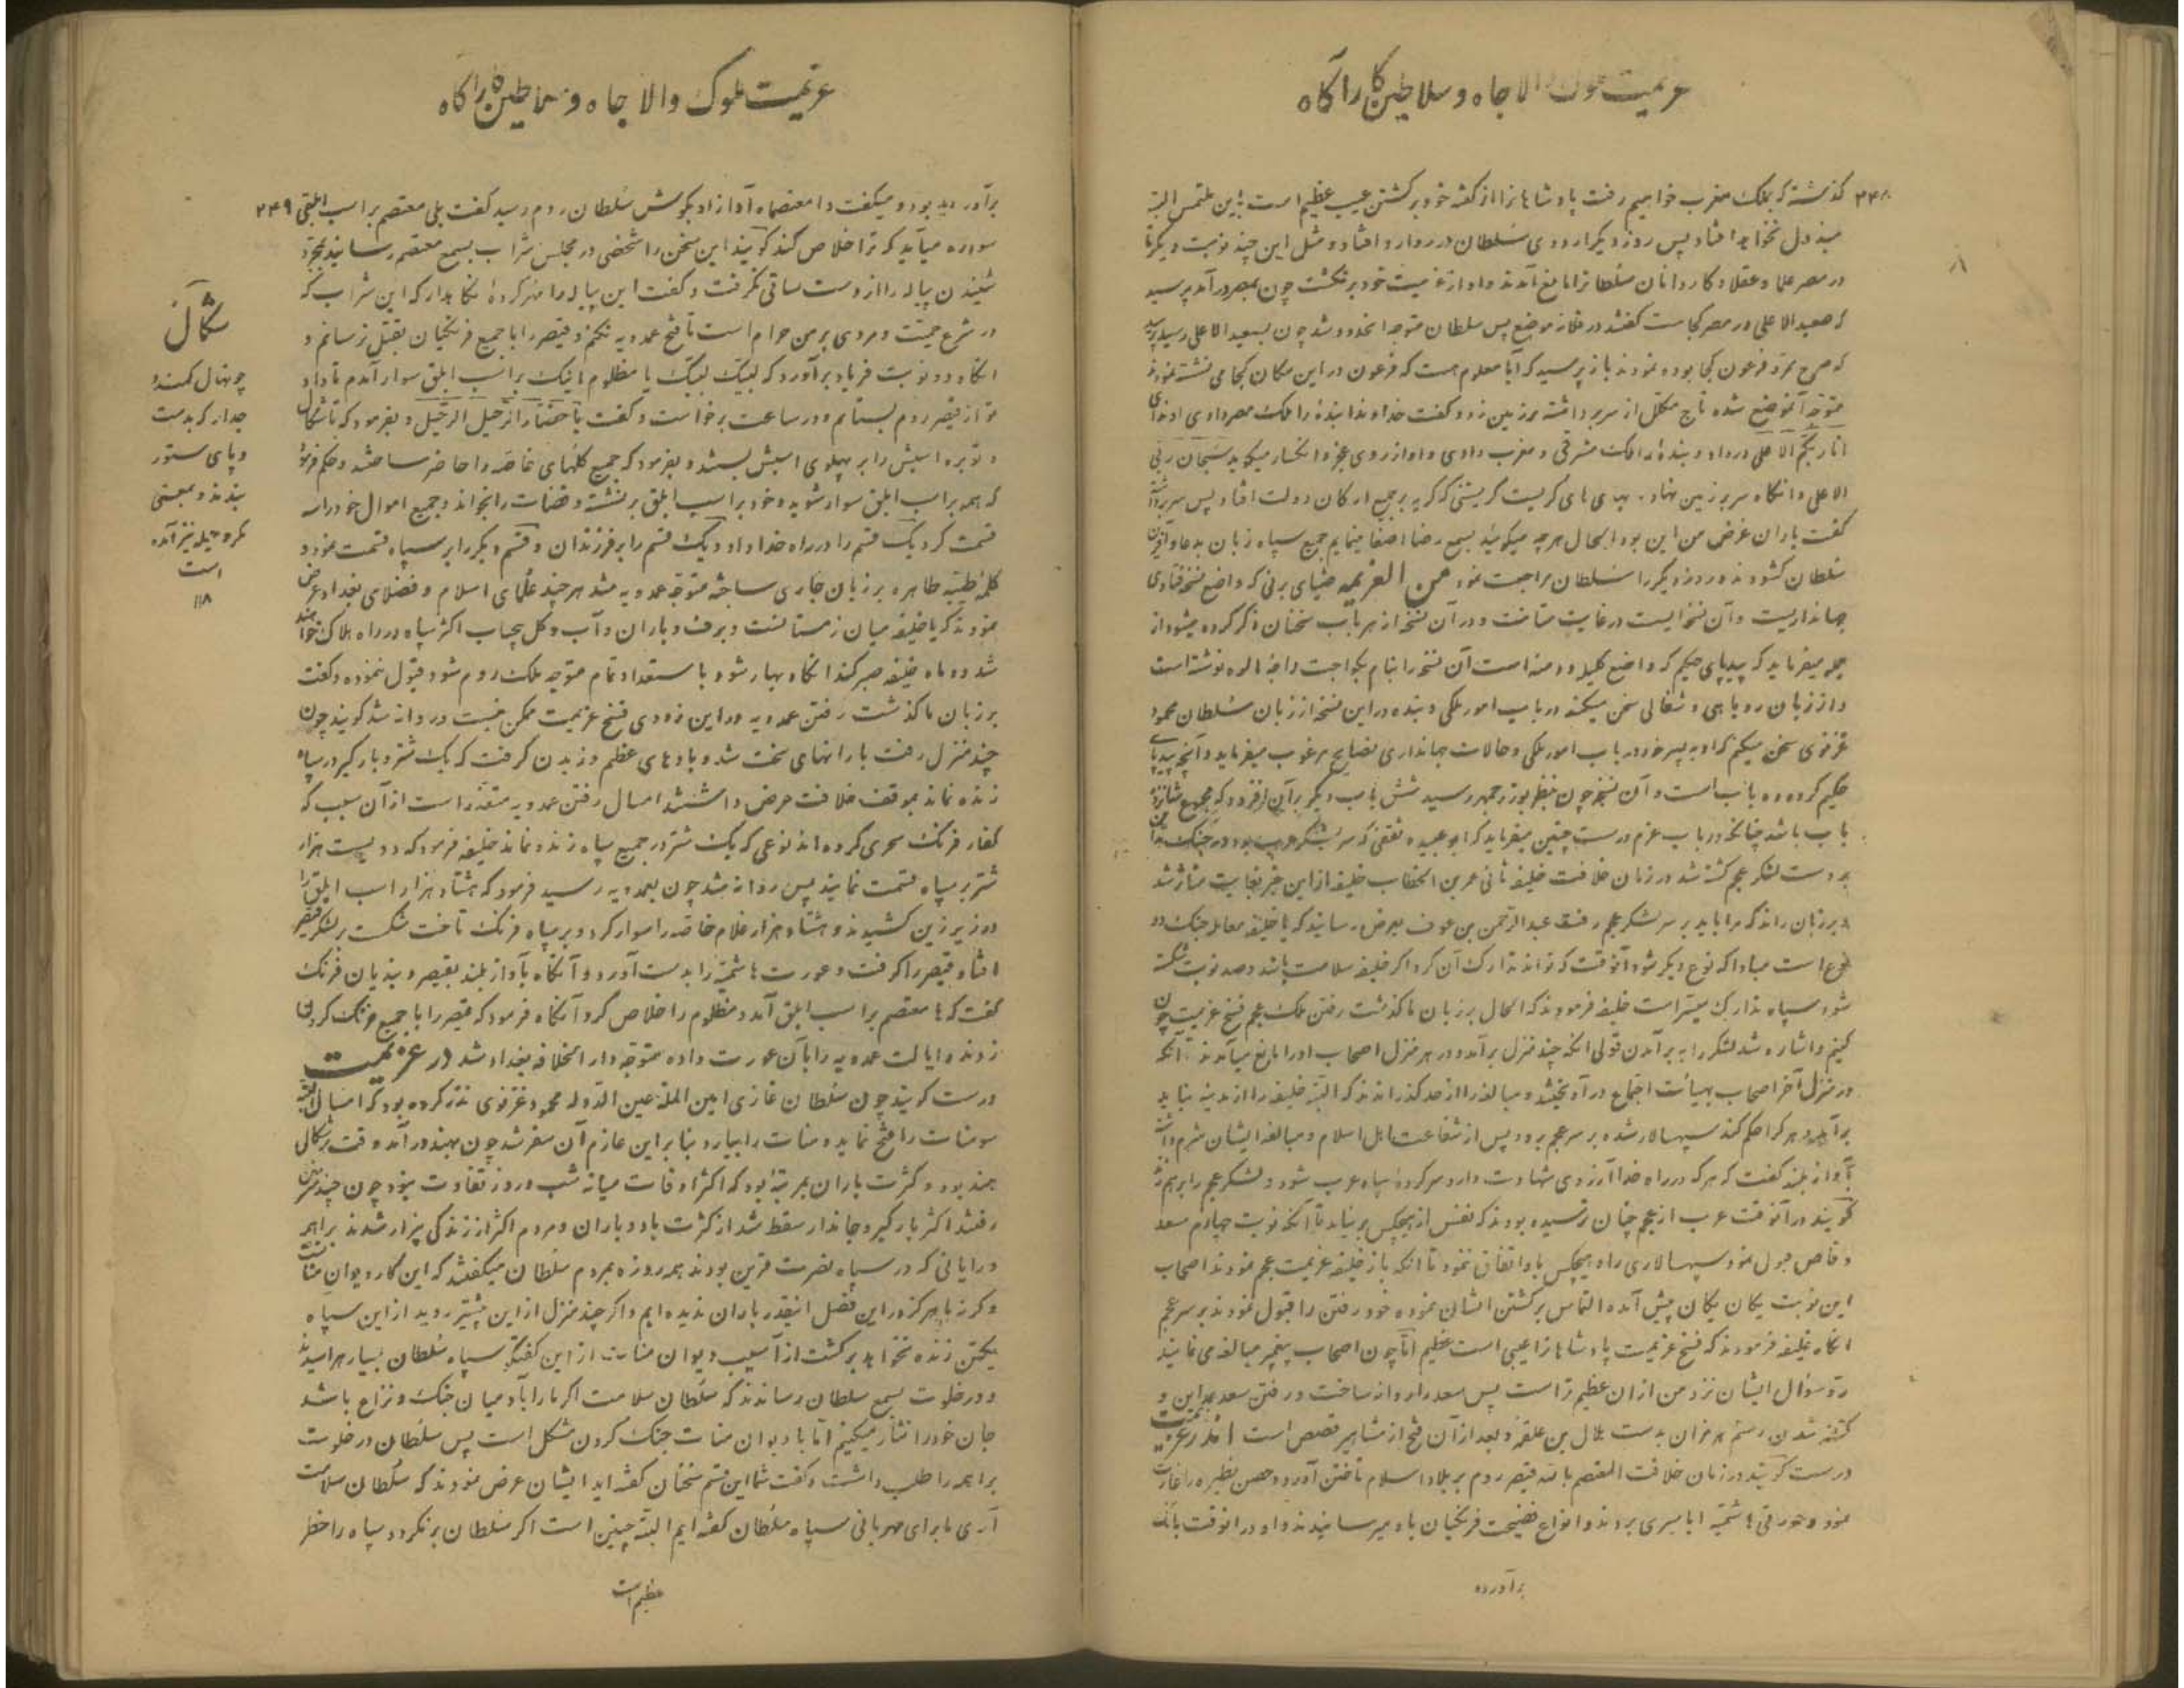 عزیمت ملوک والا جاه و سلاطین کار آگاه
۲۴۸
گذشته که بملک مغرب خواهیم رفت پادشاهانرا از گفته خود برگشتن عیب عظیم است باین ملتمس البته
مبذول نخواهد افتاد پس روز دیگر اردوی سلطان در روارو افتاد و مثل این چند نوبت دیگر تا
در مصر علما و عقلا و کاردانان سلطانرا مانع آمدند و او از عزیمت خود برنگشت چون بمصر در آمد پرسید
که صعید الاعلی در مصر کجاست گفتند در فلان موضع پس سلطان متوجه آنحدود شد چون بصعید الاعلی رسید پرسید
که صرح نمرد فرعون کجا بوده نمودند باز پرسید که آیا معلوم هست که فرعون در این مکان کجا می نشسته نمودند
متوجه آنموضع شده تاج مکلل از سر برداشته بر زمین زد و گفت خداوندا بنده را ملک مصر دادی او ندای
انا ربکم الاعلی در داد و بنده را ملک مشرق و مغرب دادی و او از روی عجز و انکسار میگوید سبحان ربی
الاعلی و انگاه سر بر زمین نهاد و بهای های گریست گریستنی که گریه بر جمیع ارکان دولت افتاد پس سر برداشته
گفت یاران غرض من این بود الحال هر چه میگوئید بسمع رضا اصغا مینمایم جمیع سپاه زبان بدعا و آفرین
سلطان گشودند و روز دیگر سلطان مراجعت نمود من العزیمه ضیای برنی که واضع نسخه فتاوی
جهانداریست و آن نسخه ایست در غایت متانت و در آن نسخه از هر باب سخنان ذکر کرده میشود از
جمله میفرماید که بیدپای حکیم که واضع کلیله و دمنه است آن نسخه را بنام نوشته است
و از زبان روباهی و شغالی سخن میکند در باب امور ملکی و بنده در این نسخه از زبان سلطان محمود
غزنوی سخن میکنم که او به پسر خود در باب امور ملکی و حالات جهانداری نصایح مرغوب میفرماید و آنچه بیدپای
حکیم کرده ده باب است و آن نسخه چون بنظر بوزرجمهر رسید شش باب دیگر بر آن افزود که مجموع شانزده
باب باشد چنانچه در باب عزم درست چنین میفرماید که ابو عبیده ثقفی که سر لشکر عرب بود در جنگ مداین
بدست لشکر عجم کشته شد در زمان خلافت خلیفه ثانی عمر بن الخطاب خلیفه از این خبر بغایت متاثر شد
و بر زبان راند که مرا باید بر سر لشکر عجم رفت عبد الرحمن بن عوف بعرض رسانید که یا خلیفه معامله جنگ دو
نوع است مبادا که نوع دیگر شود آنوقت که تواند تدارک آن کرد اگر خلیفه سلامت باشد و صد نوبت شکسته
شود سپاه تدارک میسر است خلیفه فرمودند که الحال بر زبان ما گذشت رفتن ملک عجم فسخ عزیمت چون
کنیم و اشاره شد لشکر را به برآمدن قولی آنکه چند منزل برآمد و در هر منزل اصحاب او را مانع می‌آمدند تا آنکه
در منزل آخر اصحاب بهیات اجتماع در آویختند و مبالغه را از حد گذراندند که البته خلیفه را از مدینه نباید
برآمد و هر کرا حکم کند سپهسالار شده بر سر عجم برود پس از شفاعت اهل اسلام و مبالغه ایشان شرم داشته
بآواز بلند گفت که هر که در راه خدا آرزوی شهادت دارد سر کرده سپاه عرب شود و لشکر عجم را بر هم زند
گویند در آنوقت عرب از عجم چنان ترسیده بودند که نفس از هیچکس بر نیامد تا آنکه نوبت چهارم سعد
وقاص قبول نمود سپهسالاری را و هیچکس با او اتفاق ننمود تا آنکه باز خلیفه عزیمت عجم نمودند اصحاب
این نوبت یکان یکان پیش آمده التماس برگشتن ایشان نموده خود رفتن را قبول نمودند بر سر عجم
انگاه خلیفه فرمودند که فسخ عزیمت پادشاهانرا عیبی است عظیم اما چون اصحاب پیغمبر مبالغه می نمایند
رد سؤال ایشان نزد من از آن عظیم تر است پس سعد را روانه ساخت و رفتن سعد بمداین و
کشته شدن رستم هرمزان بدست بلال بن علقمه و بعد از آن فتح از مشاهیر قصص است اندر عزیمت
درست گویند در زمان خلافت المعتصم بالله قیصر روم بر بلاد اسلام تاختن آورد و حصن نظیره را غارت
نمود و عورتی هاشمیه را باسیری بردند و انواع فضیحت فرنگیان باو میرسانیدند و او در آنوقت بانگ
برآورده
عزیمت ملوک والا جاه و سلاطین کار آگاه
۲۴۹
برآورده بود و میگفت وا معتصماه آواز او بگوش سلطان روم رسید گفت بلی معتصم بر اسب ابلقی
سواره میآید که ترا خلاص کند گویند این سخن را شخصی در مجلس شراب بسمع معتصم رسانید بمجرد
شنیدن پیاله را از دست ساقی نگرفت و گفت این پیاله را مهر کرده نگاهدار که این شراب که
در شرع حمیت و مردی بر من حرام است تا فتح عمدویه نکنم و قیصر را با جمیع فرنگیان بقتل نرسانم و
انگاه دو نوبت فریاد برآورد که لبیک لبیک یا مظلوم اینک بر اسب ابلق سوار آمدم تا داد
تو از قیصر روم بستانم و در ساعت برخاست و گفت با حضار الرحیل الرحیل و بفرمود که تا شکال
و توبره اسبش را بر پهلوی اسبش بستند و بفرمود که جمیع گلهای خاصه را حاضر ساختند و حکم فرمود
که همه بر اسب ابلق سوار شوید و خود بر اسب ابلق بر نشسته و قضات را بخواند و جمیع اموال خود را سه
قسمت کرد یک قسم را در راه خدا داد و یک قسم را بر فرزندان و قسم دیگر را بر سپاه قسمت نمود و
کلمه طیبه طاهره بر زبان جاری ساخته متوجه عمدویه شد هر چند علمای اسلام و فضلای بغداد عرض
نمودند که یا خلیفه میان زمستانست و برف و باران و آب و گل بیحساب اکثر سپاه در راه هلاک خواهند
شد دو ماه خلیفه صبر کند انگاه بهار شود با استعداد تمام متوجه ملک روم شود قبول ننموده و گفت
بر زبان ما گذشت رفتن عمدویه در این زودی فسخ عزیمت ممکن نیست و روانه شد گویند چون
چند منزل رفت بارانهای سخت شد و بادهای عظیم وزیدن گرفت که یک شتر و بارگیر در سپاه
زنده نماند بموقف خلافت عرض داشتند امسال رفتن عمدویه متعذر است از آن سبب که
کفار فرنگ سحری کرده اند نوعی که یک شتر در جمیع سپاه زنده نماند خلیفه فرمود که دویست هزار
شتر بر سپاه قسمت نمایند پس روانه شد چون بعمدویه رسید فرمود که هشتاد هزار اسب ابلق را
در زیر زین کشیدند و هشتاد هزار غلام خاصه را سوار کرد و بر سپاه فرنگ تاخت شکست بر لشکر قیصر
افتاد قیصر را گرفت و عورت هاشمیه را بدست آورد و آنگاه بآواز بلند بقیصر و بندیان فرنگ
گفت که ها معتصم بر اسب ابلق آمد و مظلوم را خلاص کرد آنگاه فرمود که قیصر را با جمیع فرنگ گردن
زدند و ایالت عمدویه را بآن عورت داده متوجه دار الخلافه بغداد شد در عزیمت
درست گویند چون سلطان غازی امین المله یمین الدوله محمود غزنوی نذر کرده بود که امسال البته
سومنات را فتح نماید و منات را بیارد بنابراین عازم آن سفر شد چون بهند در آمد وقت برشکال
هند بود و کثرت باران بمرتبه بود که اکثر اوقات میانه شب و روز تفاوت نبود چون چند منزلی
رفتند اکثر بارگیر و جاندار سقط شد از کثرت باد و باران و مردم اکثر از زندگی بیزار شدند براهمه
و رایانی که در سپاه نصرت قرین بودند همه روزه بمردم سلطان میگفتند که این کار دیوان مناتست
و گرنه ما هرگز در این فصل اینقدر باران ندیده ایم و اگر چند منزل از این پیشتر روید از این سپاه
یکتن زنده نخواهد برگشت از آسیب دیوان منات از این گفتگو سپاه سلطان بسیار هراسیدند
و در خلوت بسمع سلطان رساندند که سلطان سلامت اگر ما را با آدمیان جنگ و نزاع باشد
جان خود را نثار میکنیم اما با دیوان منات جنگ کردن مشکل است پس سلطان در خلوت
براهمه را طلب داشت و گفت شما این قسم سخنان گفته اید ایشان عرض نمودند که سلطان سلامت
آری ما برای مهربانی سپاه سلطان گفته ایم البته چنین است اگر سلطان برنگردد سپاه را خطر
عظیم است
شکال
چو نهال کمند و
جدار که بدست
و پای ستور
بندند و بمعنی
مکر و حیله نیز آمده
است
۱۱۸